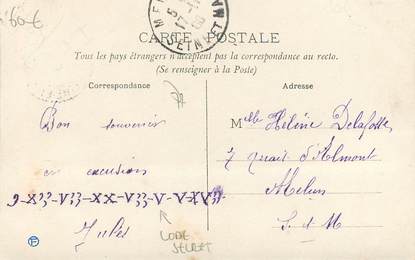 MELUN
SEINE ET MARNE
CARTE POSTALE
Tous les pays étrangers n'acceptent pas la correspondance au recto.
(Se renseigner à la Poste)
Correspondance
Bon souvenir
en excursion
Jules
CODE
SECRET
Adresse
Mlle Hélène Delafosse
7 Quai d'Almont
Melun
S. et M